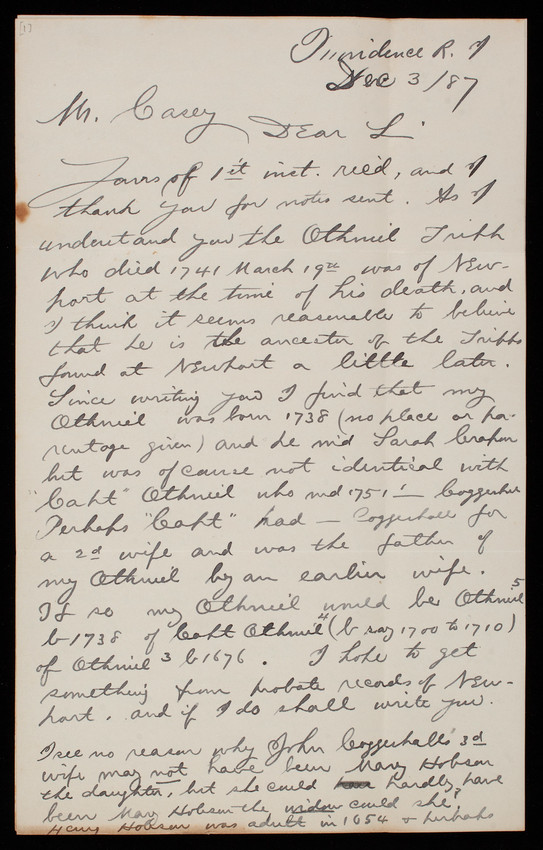 [1]
Providence R. I
Dec 3/87
Mr. Casey
Dear Sir
Yours of 1st inst. rec'd, and I
thank you for notes sent. As I
understand you the Othniel Tripp
who died 1741 March 19th was of New-
port at the time of his death, and
I think it seems reasonable to believe
that he is the ancestor of the Tripps
found at Newport a little later.
Since writing you I find that my
Othniel was born 1738 (no place or pa-
rentage given) and he md Sarah
but was of course not identical with
"Capt" Othniel who md 1751 — Coggeshall
Perhaps "Capt" had — Coggeshall for
a 2d wife and was the father of
my Othniel by an earlier wife.
If so my Othniel would be Othniel 5
b 1738 of Capt Othniel 4 (b say 1700 to 1710)
of Othniel 3 b 1676. I hope to get
something from probate records of New-
port, and if I do shall write you.
I see no reason why John Coggeshall's 3d
wife may not have been Mary Hobson
the daughter, but she could hardly have
been Mary Hobson the widow could she?
Henry Hobson was adult in 1654 & perhaps